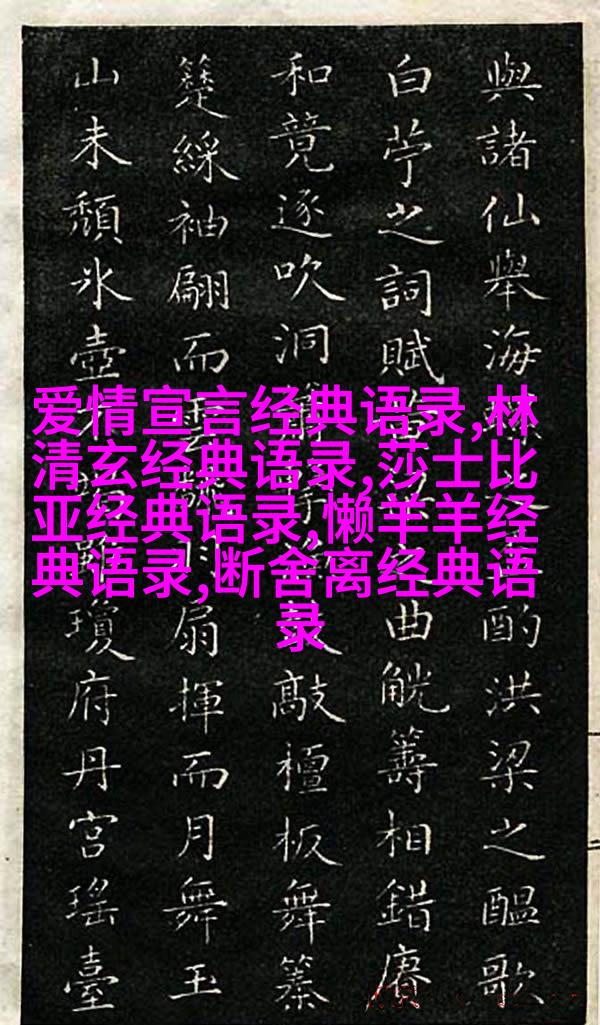 與諸仙舉海酌洪梁之醞歌
白苧之詞賦之曲觥籌相錯賡
和竟逐吹洞簫敲檀板舞
綵袖翩而雲扇揮而月舞玉
山未頹氷壺瓊府丹宮瑤臺
爱情宣言经典语录,林
清玄经典语录,莎士比
亚经典语录,懒羊羊经
典语录,断舍离经典语
录